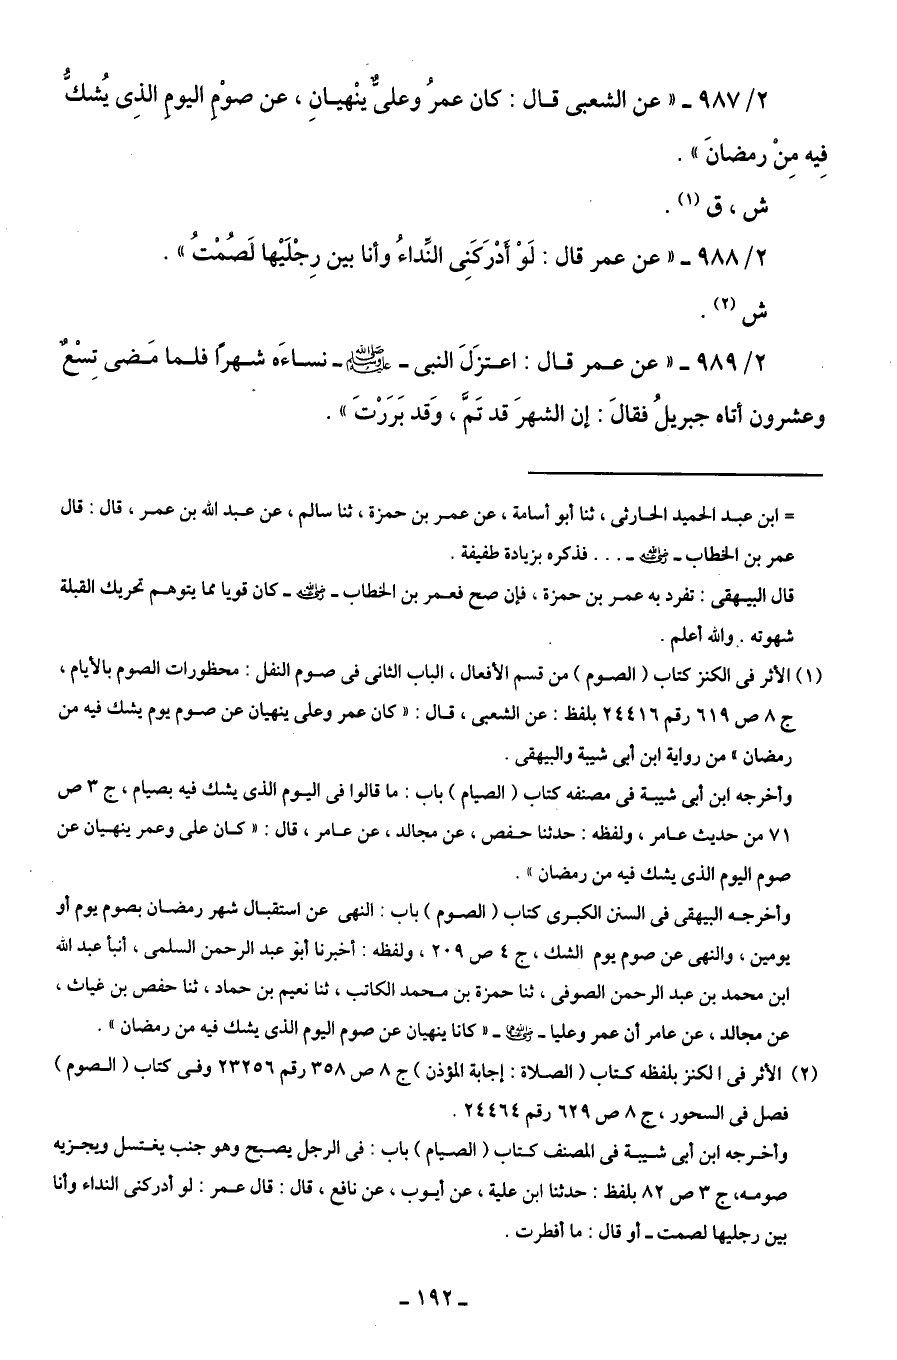 ٢/ ٩٨٧ ـ « عن الشعبى قال : كان عمرُ وعلىٌّ ينْهيانِ ، عن صوْمِ اليومِ الذِى يُشكُّ
فِيه مِنْ رمضانَ » .
ش ، ق (١) .
٢/ ٩٨٨ ـ « عن عمر قال : لَوْ أَدْرَكَنِى النِّداءُ وأنا بين رِجْلَيْها لَصُمْتُ » .
ش (٢) .
٢/ ٩٨٩ ـ « عن عمر قال : اعتزلَ النبى ـ ﷺ ـ نساءَه شهراً فلما مَضى تِسْعٌ
وعشرون أتاه جبريلُ فقالَ : إن الشهرَ قد تَمَّ ، وَقد بَرَرْتَ » .
= ابن عبد الحميد الحارثى ، ثنا أبو أسامة ، عن عمر بن حمزة ، ثنا سالم ، عن عبد الله بن عمر ، قال : قال
عمر بن الخطاب ـ رضي الله عنه ـ . . . فذكره بزيادة طفيفة .
قال البيهقى : تفرد به عمر بن حمزة ، فإن صح فعمر بن الخطاب ـ رضي الله عنه ـ كان قويا مما يتوهم تحريك القبلة
شهوته . والله أعلم .
(١) الأثر فى الكنز كتاب ( الصوم ) من قسم الأفعال ، الباب الثانى فى صوم النفل : محظورات الصوم بالأيام ،
ج ٨ ص ٦١٩ رقم ٢٤٤١٦ بلفظ : عن الشعبى ، قال : « كان عمر وعلى ينهيان عن صوم يوم يشك فيه من
رمضان » من رواية ابن أبى شيبة والبيهقى .
وأخرجه ابن أبى شيبة فى مصنفه كتاب ( الصيام ) باب : ما قالوا فى اليوم الذى يشك فيه بصيام ، ج ٣ ص
٧١ من حديث عامر ، ولفظه : حدثنا حفص ، عن مجالد ، عن عامر ، قال : « كان على وعمر ينهيان عن
صوم اليوم الذى يشك فيه من رمضان » .
وأخرجه البيهقى فى السنن الكبرى كتاب ( الصوم ) باب : النهى عن استقبال شهر رمضان بصوم يوم أو
يومين ، والنهى عن صوم يوم الشك ، ج ٤ ص ٢٠٩ ، ولفظه : أخبرنا أبو عبد الرحمن السلمى ، أنبأ عبد الله
ابن محمد بن عبد الرحمن الصوفى ، ثنا حمزة بن محمد الكاتب ، ثنا نعيم بن حماد ، ثنا حفص بن غياث ،
عن مجالد ، عن عامر أن عمر وعليا ـ رضي الله عنهما ـ « كانا ينهيان عن صوم اليوم الذى يشك فيه من رمضان » .
(٢) الأثر فى الكنز بلفظه كتاب ( الصلاة : إجابة المؤذن ) ج ٨ ص ٣٥٨ رقم ٢٣٢٥٦ وفى كتاب ( الصوم )
فصل فى السحور ، ج ٨ ص ٦٢٩ رقم ٢٤٤٦٤ .
وأخرجه ابن أبى شيبة فى المصنف كتاب ( الصيام ) باب : فى الرجل يصبح وهو جنب يغتسل ويجزيه
صومه، ج ٣ ص ٨٢ بلفظ : حدثنا ابن علية ، عن أيوب ، عن نافع ، قال : قال عمر : لو أدركنى النداء وأنا
بين رجليها لصمت ـ أو قال : ما أفطرت .
ـ ١٩٢ ـ